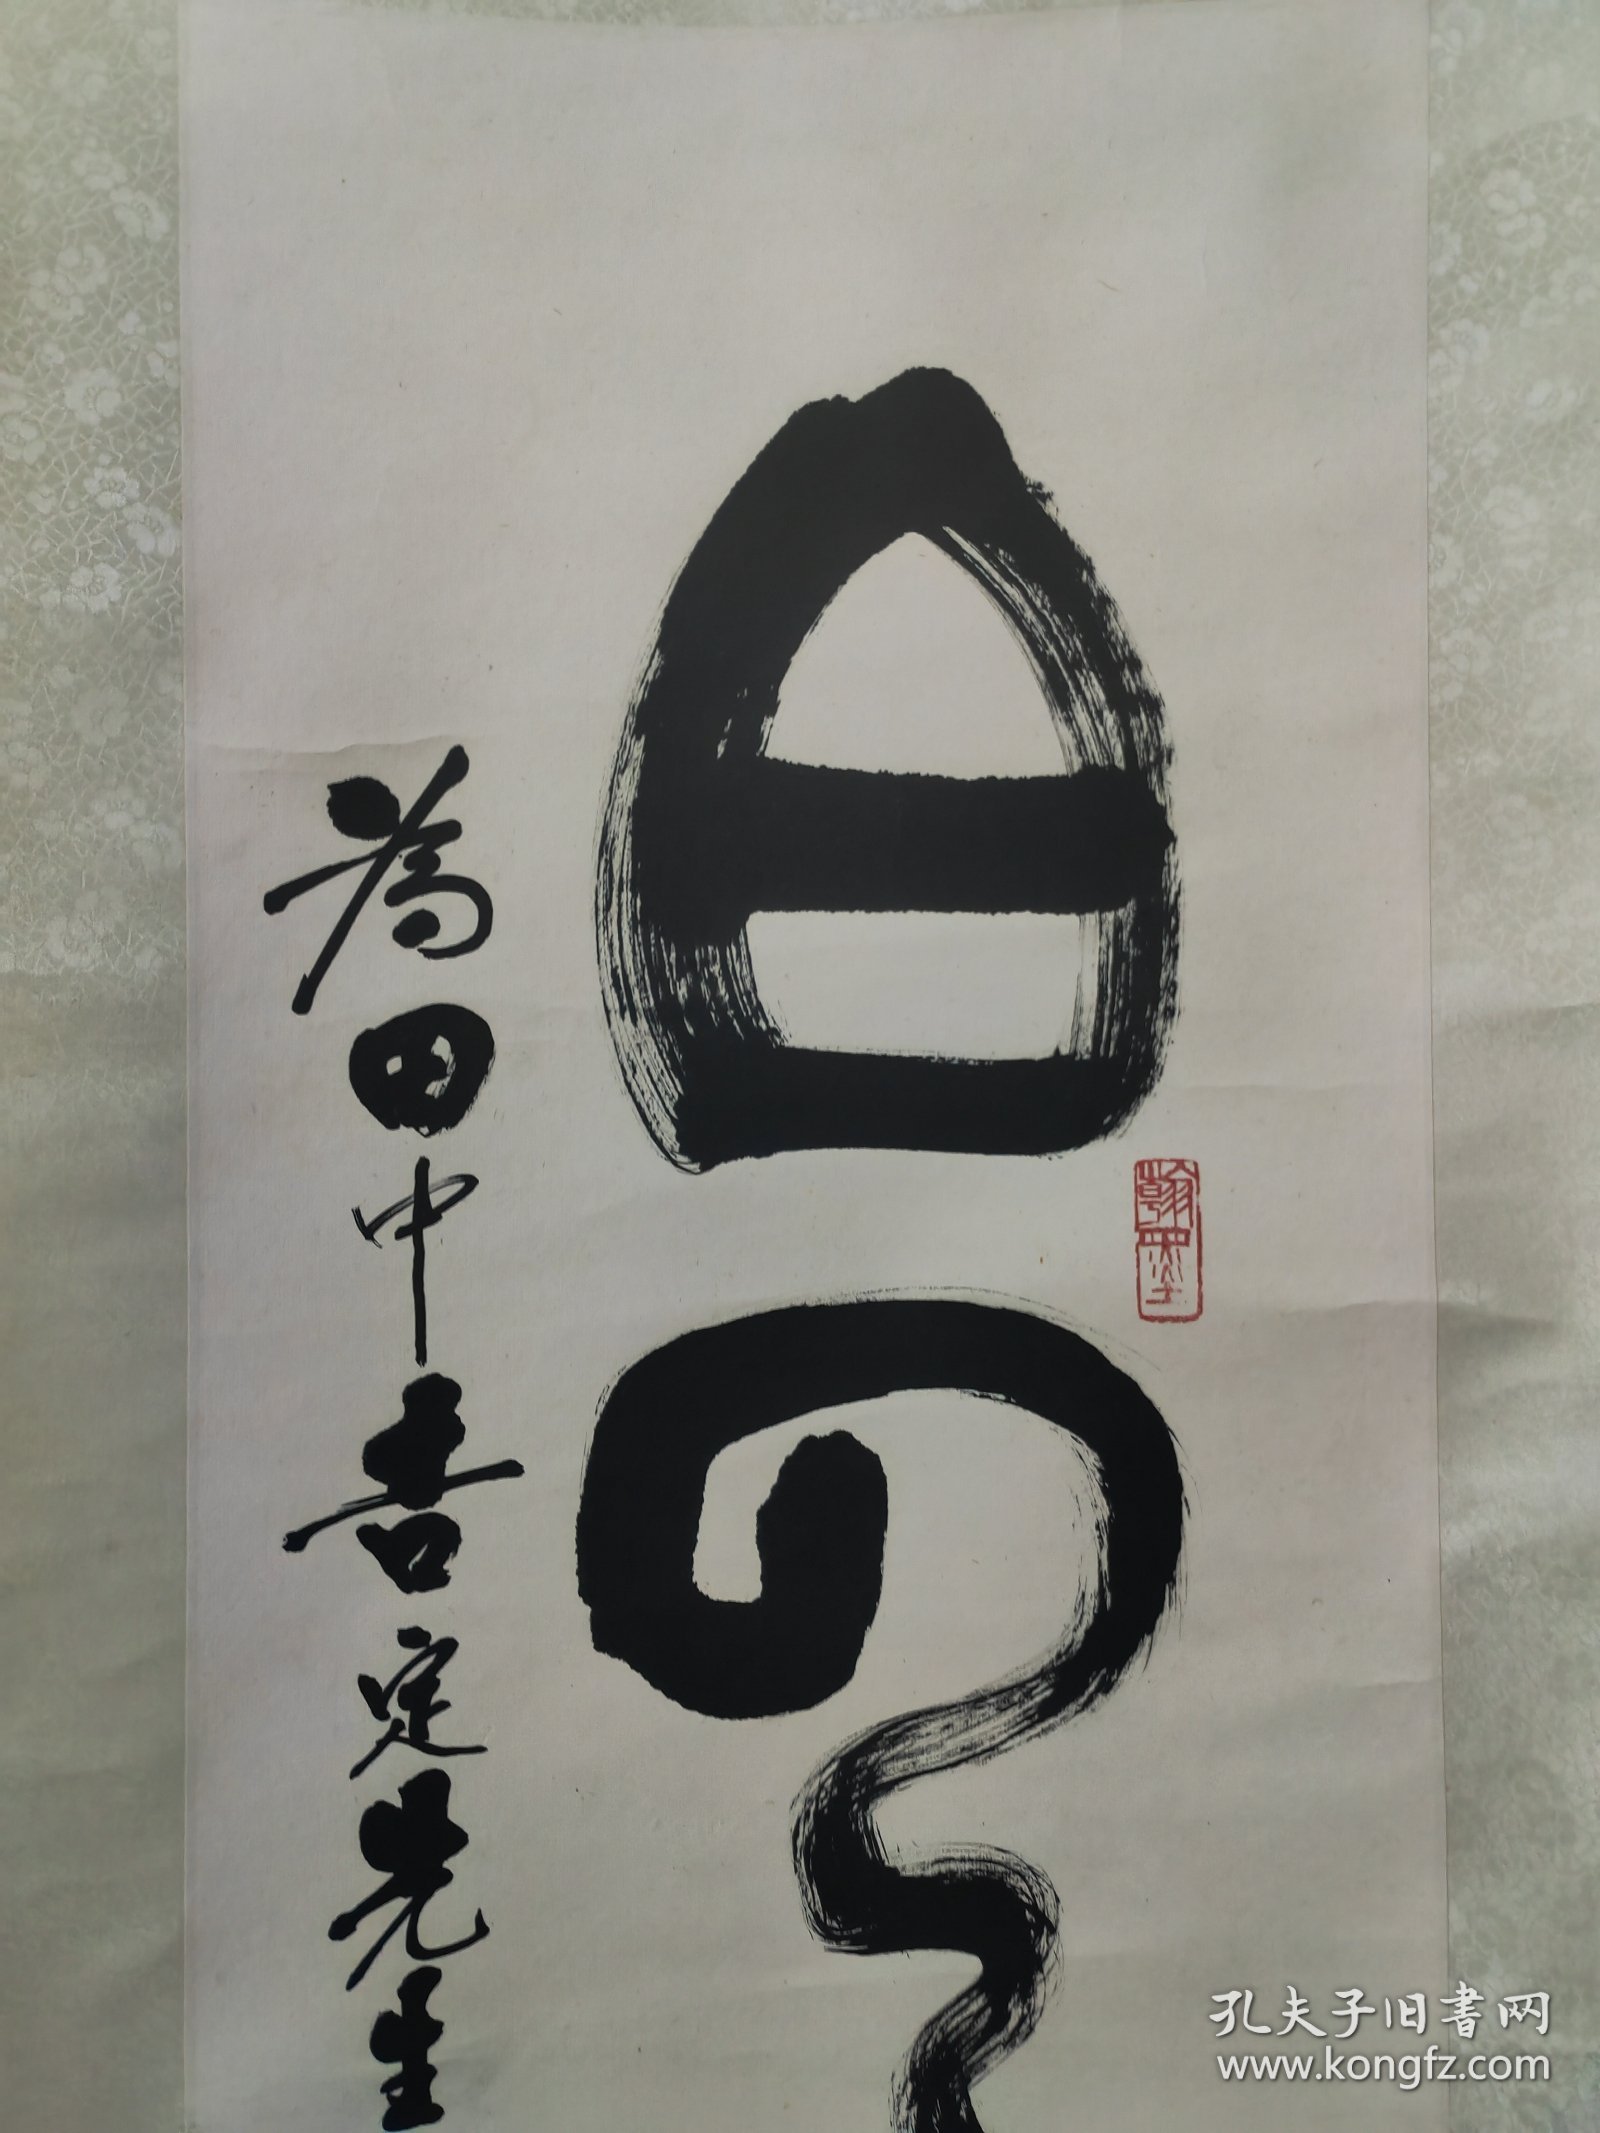 白雲
為田中吉定先生
翰墨
孔夫子旧书网
www.kongfz.com